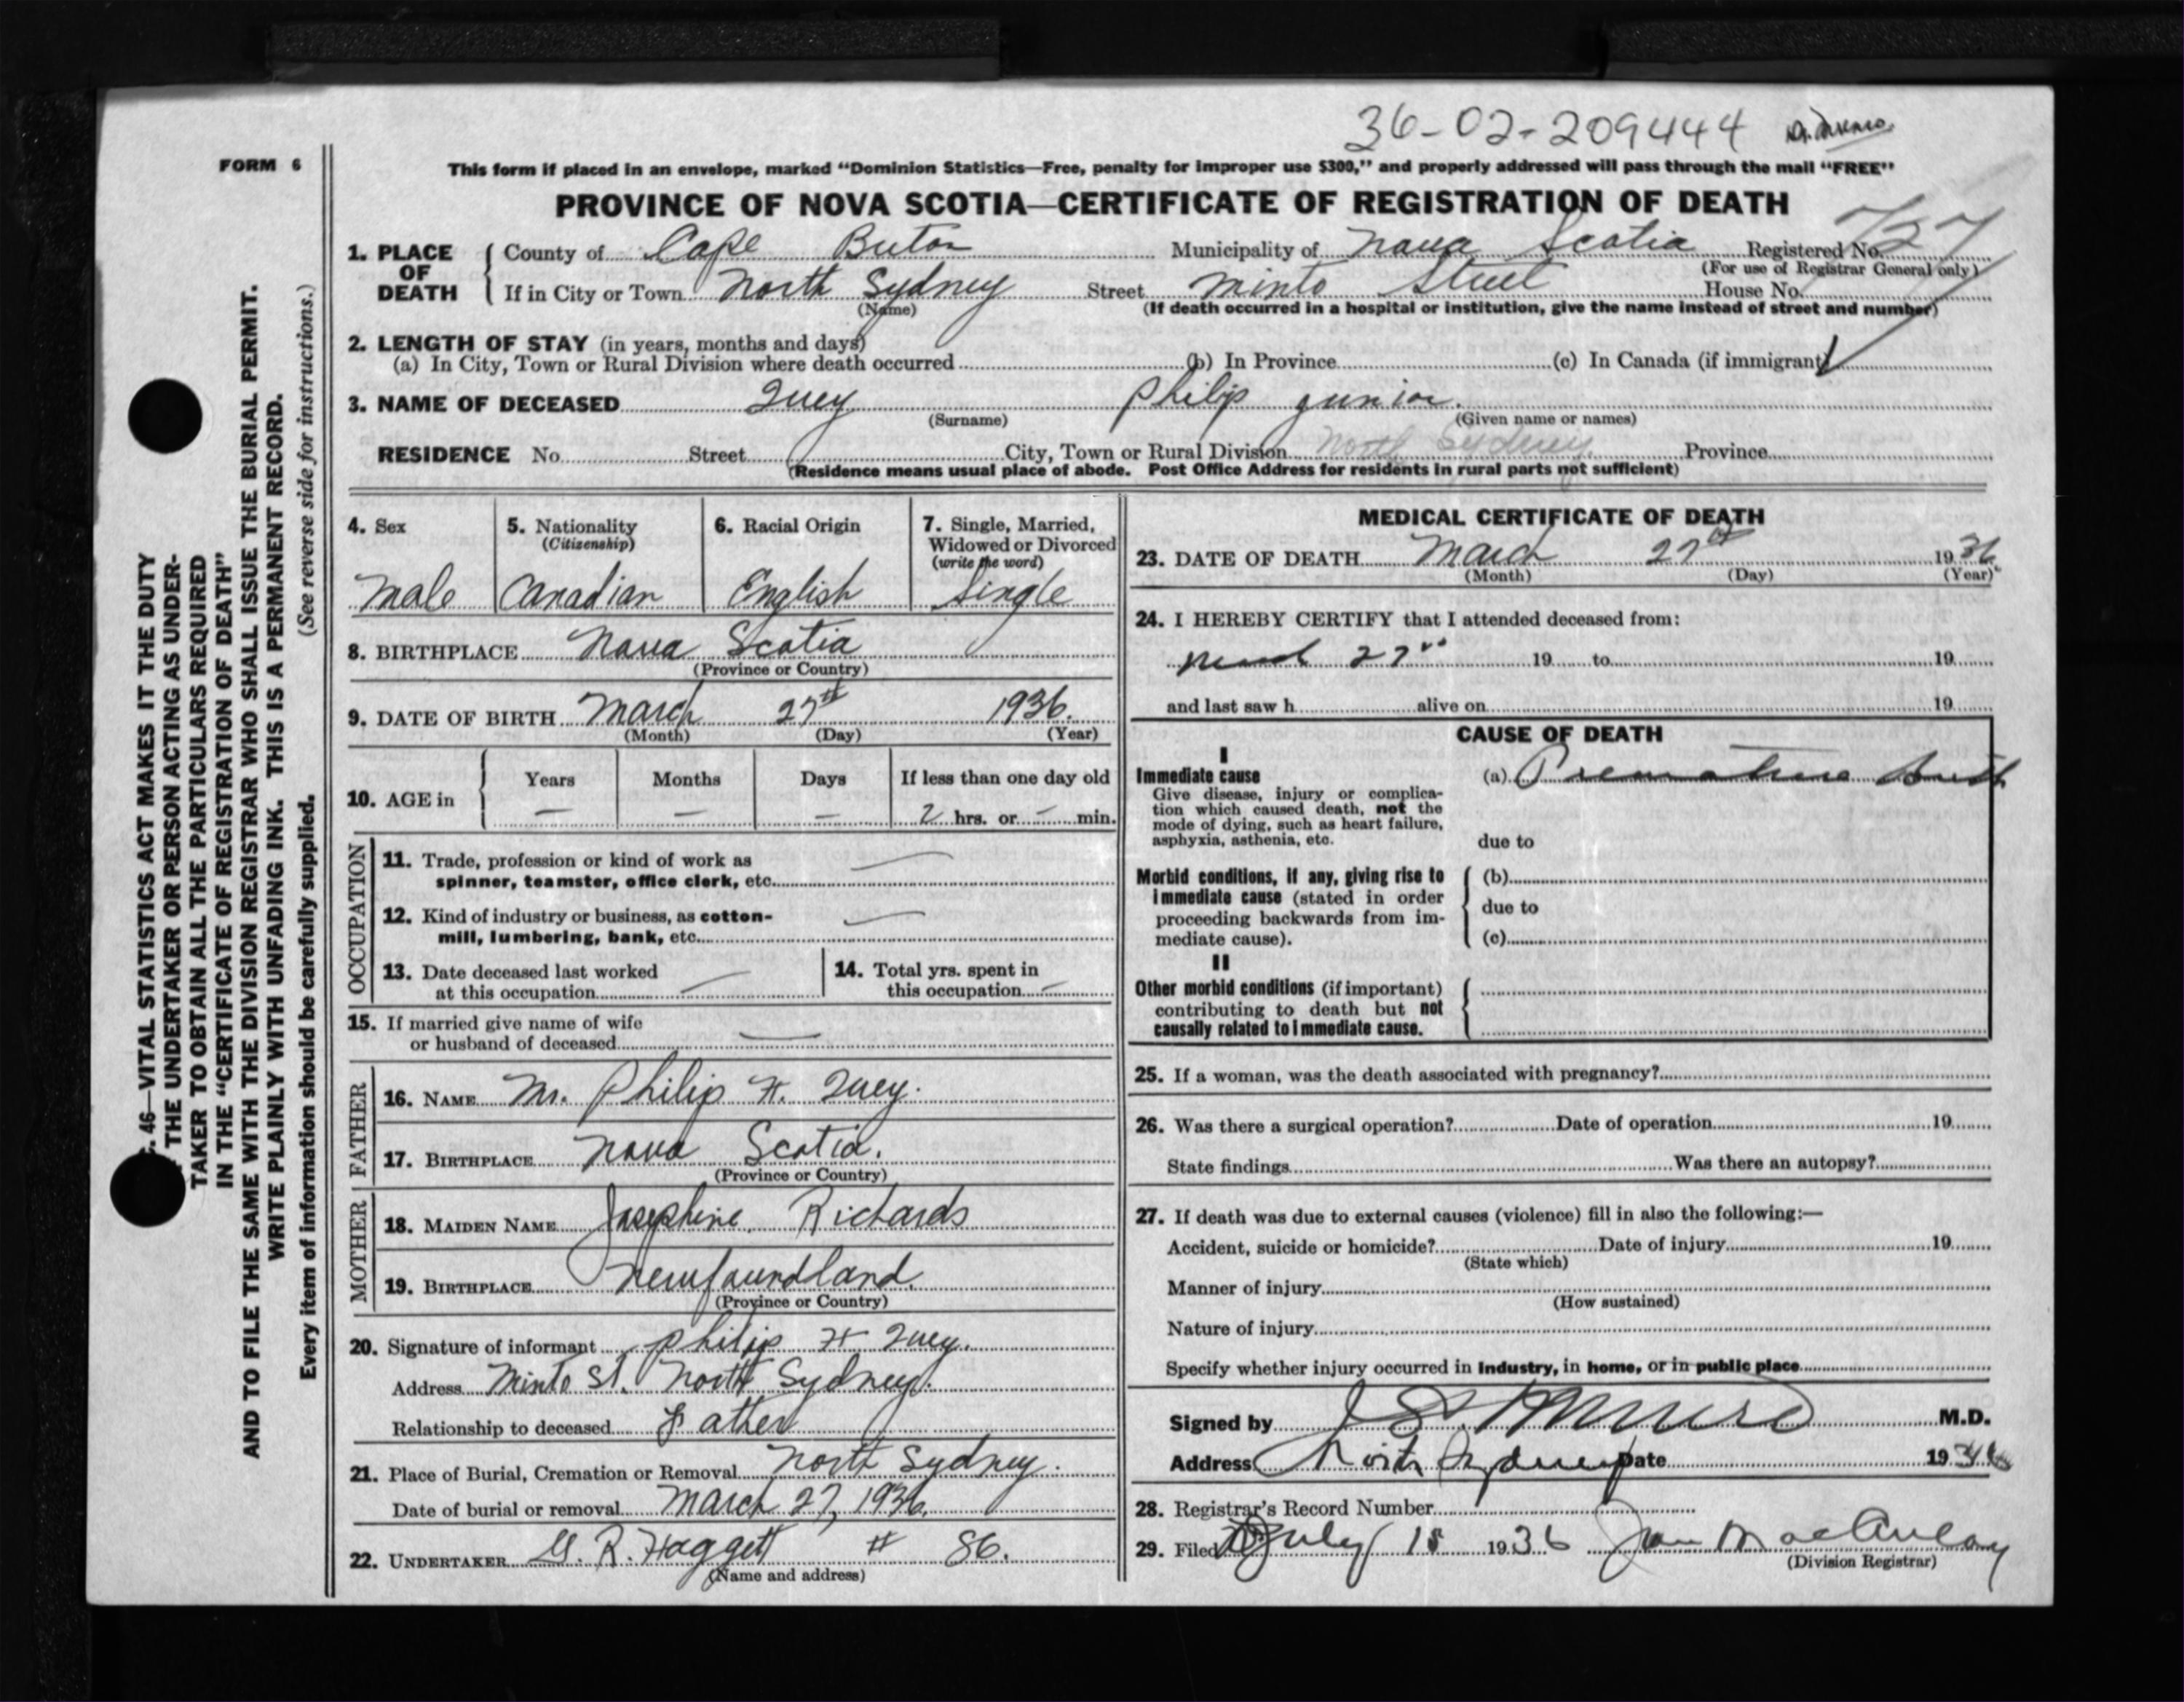 36-02-209444 Dr. Munro.
FORM 6
This form if placed in an envelope, marked "Dominion Statistics—Free, penalty for improper use $300," and properly addressed will pass through the mail "FREE"
PROVINCE OF NOVA SCOTIA—CERTIFICATE OF REGISTRATION OF DEATH
1. PLACE OF DEATH County of Cape Breton Municipality of Nova Scotia Registered No. 727
(For use of Registrar General only)
If in City or Town North Sydney Street Minto Street House No.
(Name) (If death occurred in a hospital or institution, give the name instead of street and number)
2. LENGTH OF STAY (in years, months and days)
(a) In City, Town or Rural Division where death occurred (b) In Province (c) In Canada (if immigrant)
3. NAME OF DECEASED Philip Junior.
(Surname) (Given name or names)
RESIDENCE No. Street City, Town or Rural Division North Sydney. Province
(Residence means usual place of abode. Post Office Address for residents in rural parts not sufficient)
4. Sex 5. Nationality 6. Racial Origin 7. Single, Married,
(Citizenship) Widowed or Divorced
(write the word)
Male Canadian English Single
8. BIRTHPLACE Nova Scotia
(Province or Country)
9. DATE OF BIRTH March 27th 1936.
(Month) (Day) (Year)
10. AGE in Years Months Days If less than one day old
— — — 2 hrs. or — min.
OCCUPATION
11. Trade, profession or kind of work as —
spinner, teamster, office clerk, etc.
12. Kind of industry or business, as cotton- —
mill, lumbering, bank, etc.
13. Date deceased last worked 14. Total yrs. spent in
at this occupation — this occupation —
15. If married give name of wife
or husband of deceased —
FATHER
16. NAME Mr. Philip H.
17. BIRTHPLACE Nova Scotia.
(Province or Country)
MOTHER
18. MAIDEN NAME Josephine Richards
19. BIRTHPLACE Newfoundland.
(Province or Country)
20. Signature of informant Philip H
Address Minto St. North Sydney.
Relationship to deceased Father
21. Place of Burial, Cremation or Removal North Sydney.
Date of burial or removal March 27, 1936.
22. UNDERTAKER G. R. Haggett # 86.
(Name and address)
MEDICAL CERTIFICATE OF DEATH
23. DATE OF DEATH March 27th 1936
(Month) (Day) (Year)
24. I HEREBY CERTIFY that I attended deceased from:
March 27th 19 to 19
and last saw h alive on 19
CAUSE OF DEATH
I
Immediate cause (a) Premature birth
Give disease, injury or complica-
tion which caused death, not the
mode of dying, such as heart failure,
asphyxia, asthenia, etc. due to
Morbid conditions, if any, giving rise to (b)
immediate cause (stated in order due to
proceeding backwards from im-
mediate cause). (c)
II
Other morbid conditions (if important)
contributing to death but not
causally related to immediate cause.
25. If a woman, was the death associated with pregnancy?
26. Was there a surgical operation? Date of operation 19
State findings Was there an autopsy?
27. If death was due to external causes (violence) fill in also the following:—
Accident, suicide or homicide? Date of injury 19
(State which)
Manner of injury
(How sustained)
Nature of injury
Specify whether injury occurred in industry, in home, or in public place
Signed by Munro M.D.
Address North Sydney Date 1936
28. Registrar's Record Number
29. Filed July 18 1936 MacAulay
(Division Registrar)
C. 46—VITAL STATISTICS ACT MAKES IT THE DUTY
THE UNDERTAKER OR PERSON ACTING AS UNDER-
TAKER TO OBTAIN ALL THE PARTICULARS REQUIRED
IN THE "CERTIFICATE OF REGISTRATION OF DEATH"
AND TO FILE THE SAME WITH THE DIVISION REGISTRAR WHO SHALL ISSUE THE BURIAL PERMIT.
WRITE PLAINLY WITH UNFADING INK. THIS IS A PERMANENT RECORD.
Every item of information should be carefully supplied. (See reverse side for instructions.)